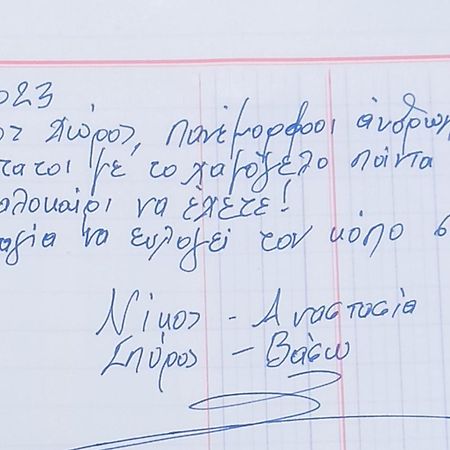 023
ος χώρος, πανέμορφοι άνθρωπ
τατοι με το χαμόγελο πάντα
αλοκαίρι να έχετε!
αγία να ευλογεί τον κόπο σ
Νίκος - Αναστασία
Σπύρος - Βάσω